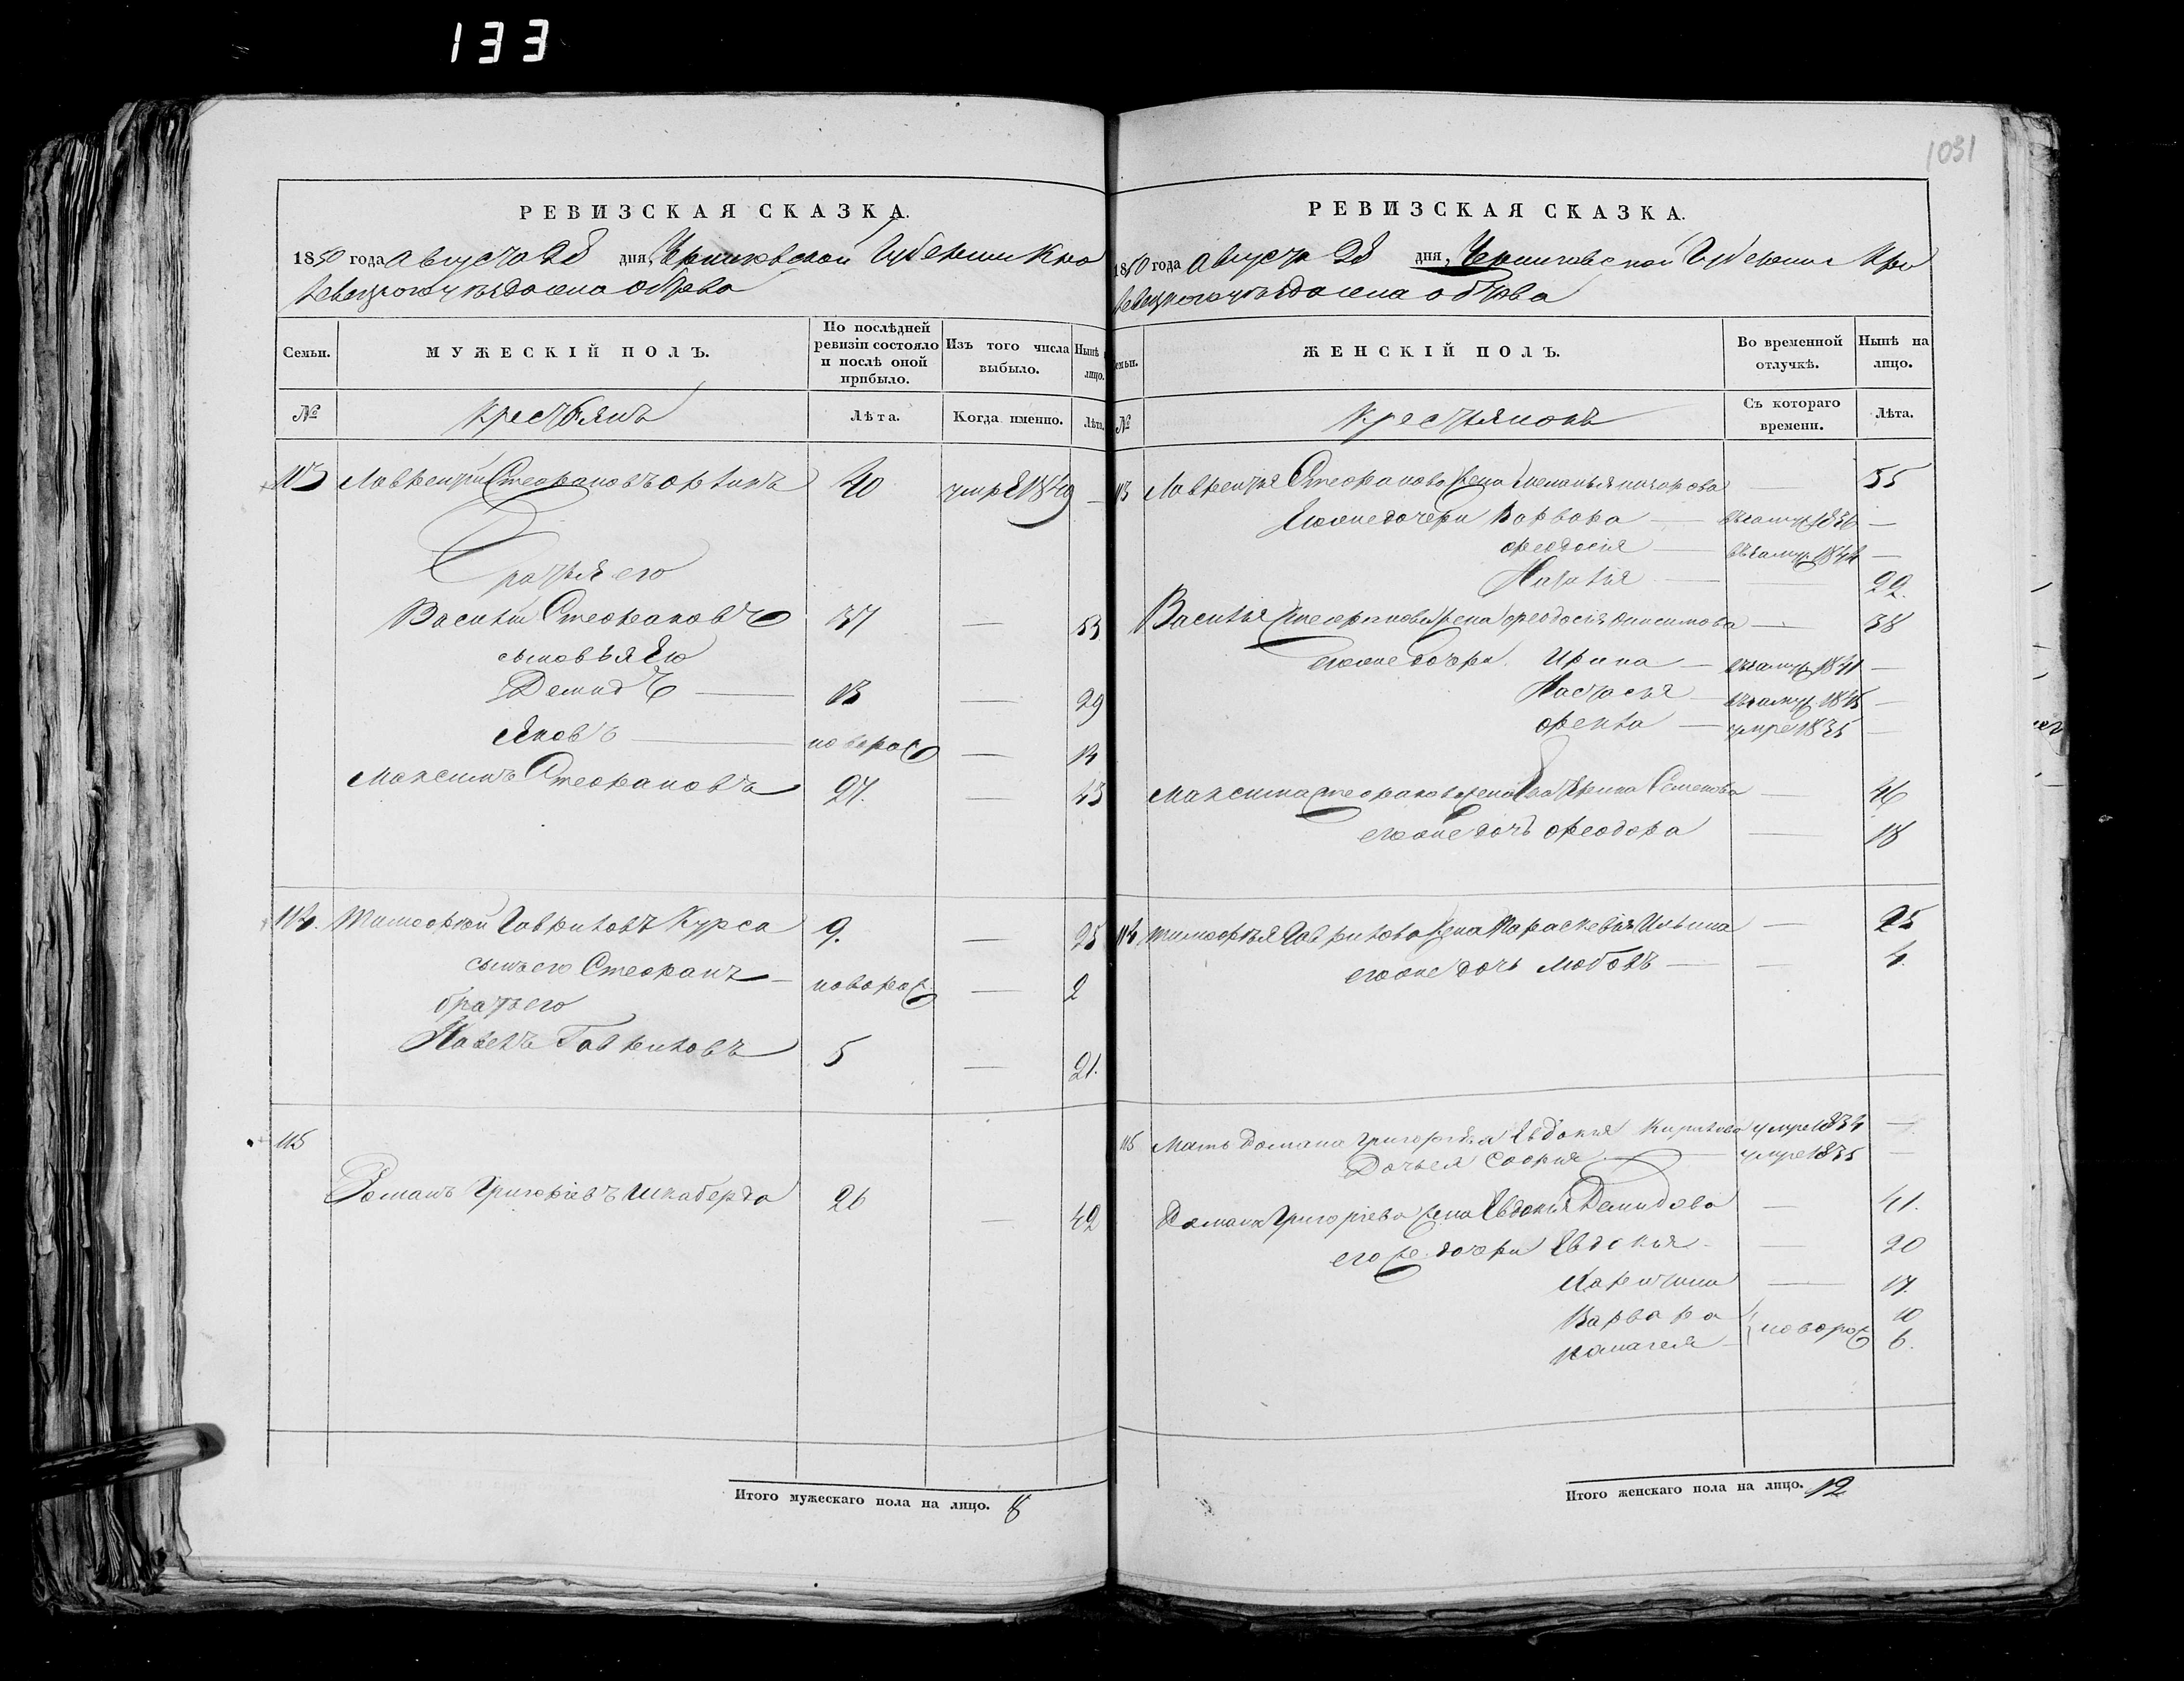 133
1031
РЕВИЗСКАЯ СКАЗКА.
1850 года Августа 28 дня, Черниговской Губернии Кро
левецкого уезда села
Семьи.
МУЖЕСКІЙ ПОЛЪ.
По послѣдней ревизіи состояло и послѣ оной прибыло.
Изъ того числа выбыло.
Нынѣ
лицо.
№
Крестьянъ
Лѣта.
Когда именно.
Лѣта.
113 Лаврентій Стефановъ 40 умре 1849 —
Братья его
Василій Стефановъ 37 — 53
сыновья Его
Демидъ — 13 — 29
Яковъ — новорож — 14
Максимъ Стефановъ 27. — 43
114. Тимофѣй Гавриловъ Курса 9. — 25
сынъ его Стефанъ — новорож — 2
братъ его
Павелъ Гавриловъ 5 — 21.
115
Романъ Григорьевъ Шкаберда 26 — 42
Итого мужескаго пола на лицо. 8
РЕВИЗСКАЯ СКАЗКА.
1850 года Августа 28 дня, Черниговской Губернии Кро
левецкого уезда села
емьи.
ЖЕНСКІЙ ПОЛЪ.
Во временной отлучкѣ.
Нынѣ на лицо.
№
Крестьянокъ
Съ котораго времени.
Лѣта.
113 Лаврентія Стефанова жена — 55
Его же дочери Варвара — въ замуж 1836 —
Феодосія — въ замуж 1842 —
Наталія — 22.
Василія Стефанова жена Феодосія Анисимова — 38
его же дочери Ирина — въ замуж 1841 —
Настасія — въ замуж 1845 —
Фекла — умре 1835 —
Максима Стефанова жена Екатерина Семенова — 46
его же дочь Феодора — 18
114 Тимофѣя Гаврилова жена Параскевія Ильина — 25
его же дочь Любовь — — 4.
115 Мать Романа Григорьева Евдокія Кирилова умре 1834 —
Дочь ея Софія — умре 1835 —
Романа Григорьева жена Евдокія Демидова — 41.
его же дочери Евдокія — 20
Харитина — 17.
Варвара 10
Пелагея — новорож 6.
Итого женскаго пола на лицо. 12